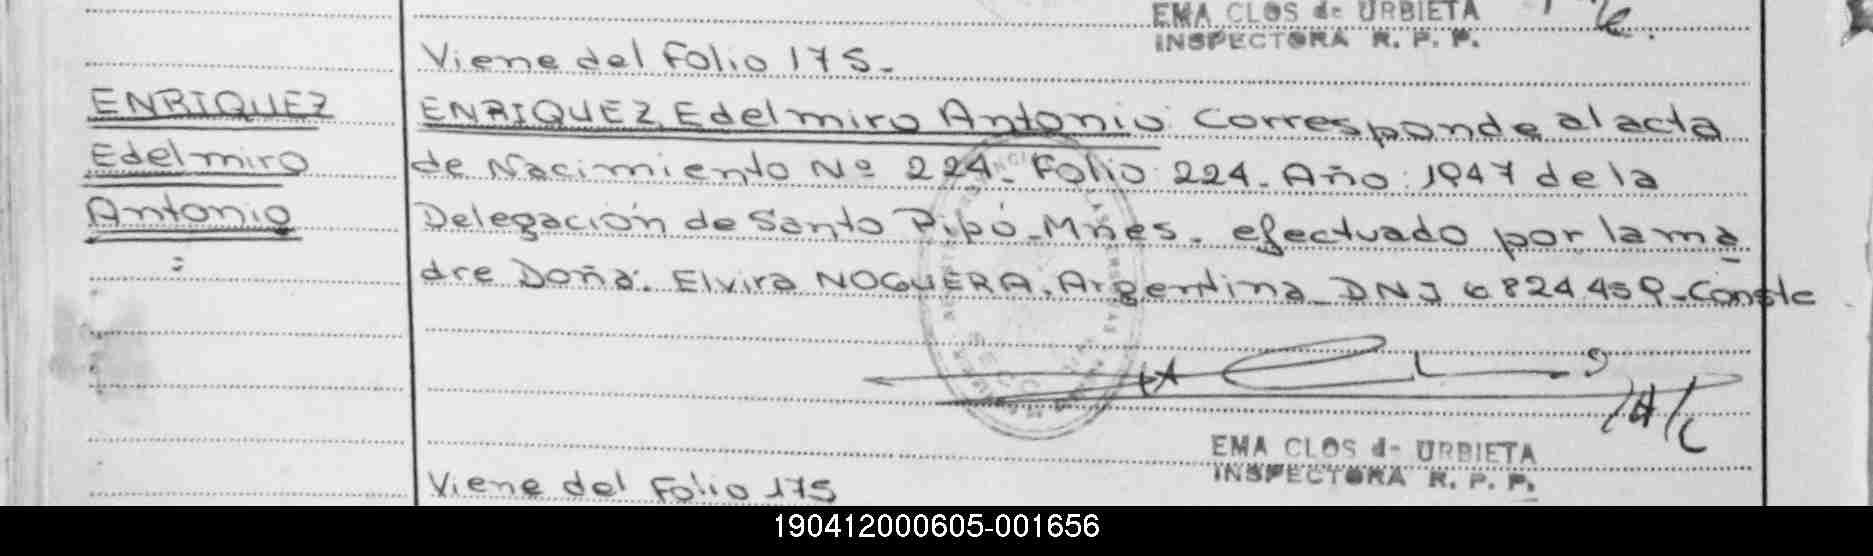 EMA CLOS de URBIETA
INSPECTORA R. P. P.
Viene del Folio 175.
ENRIQUEZ
Edelmiro
Antonio
ENRIQUEZ, Edelmiro Antonio Corresponde al acta
de Nacimiento Nº 224. Folio 224. Año: 1947 de la
Delegación de Santo Pipó_Mnes. efectuado por la ma
dre Doña: Elvira NOGUERA. Argentina_DNI 6824459_Conste
EMA CLOS de URBIETA
INSPECTORA R. P. P.
Viene del Folio 175
190412000605-001656